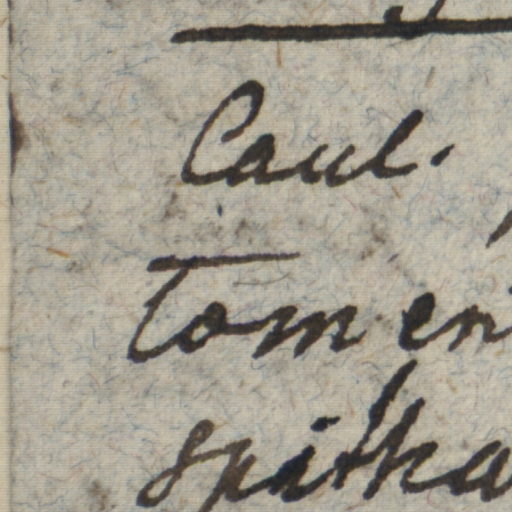 Caul.
tomen
spitha